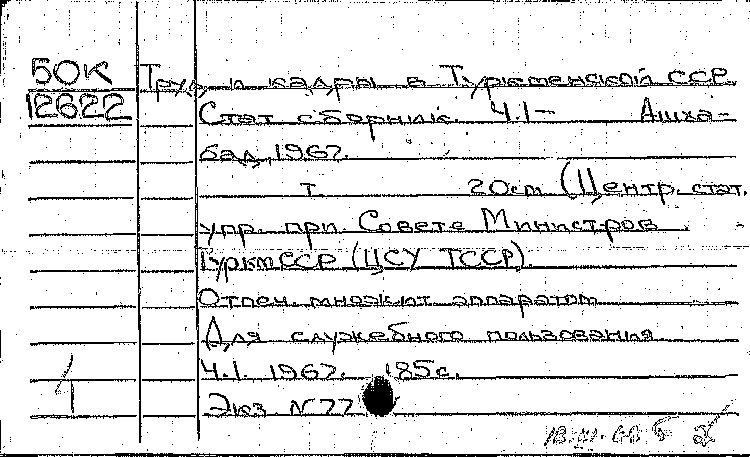 50К Труд и кадры в Туркменской ССР.
12622 Стат. сборник. Ч.1– Ашха-
бад, 1967.
т. 20см (Центр. стат.
упр. при Совете Министров
ТуркмССР (ЦСУ ТССР).
Отпеч. множит. аппаратом
Для служебного пользования
Ч.1. 1967. 185с.
Экз. №77